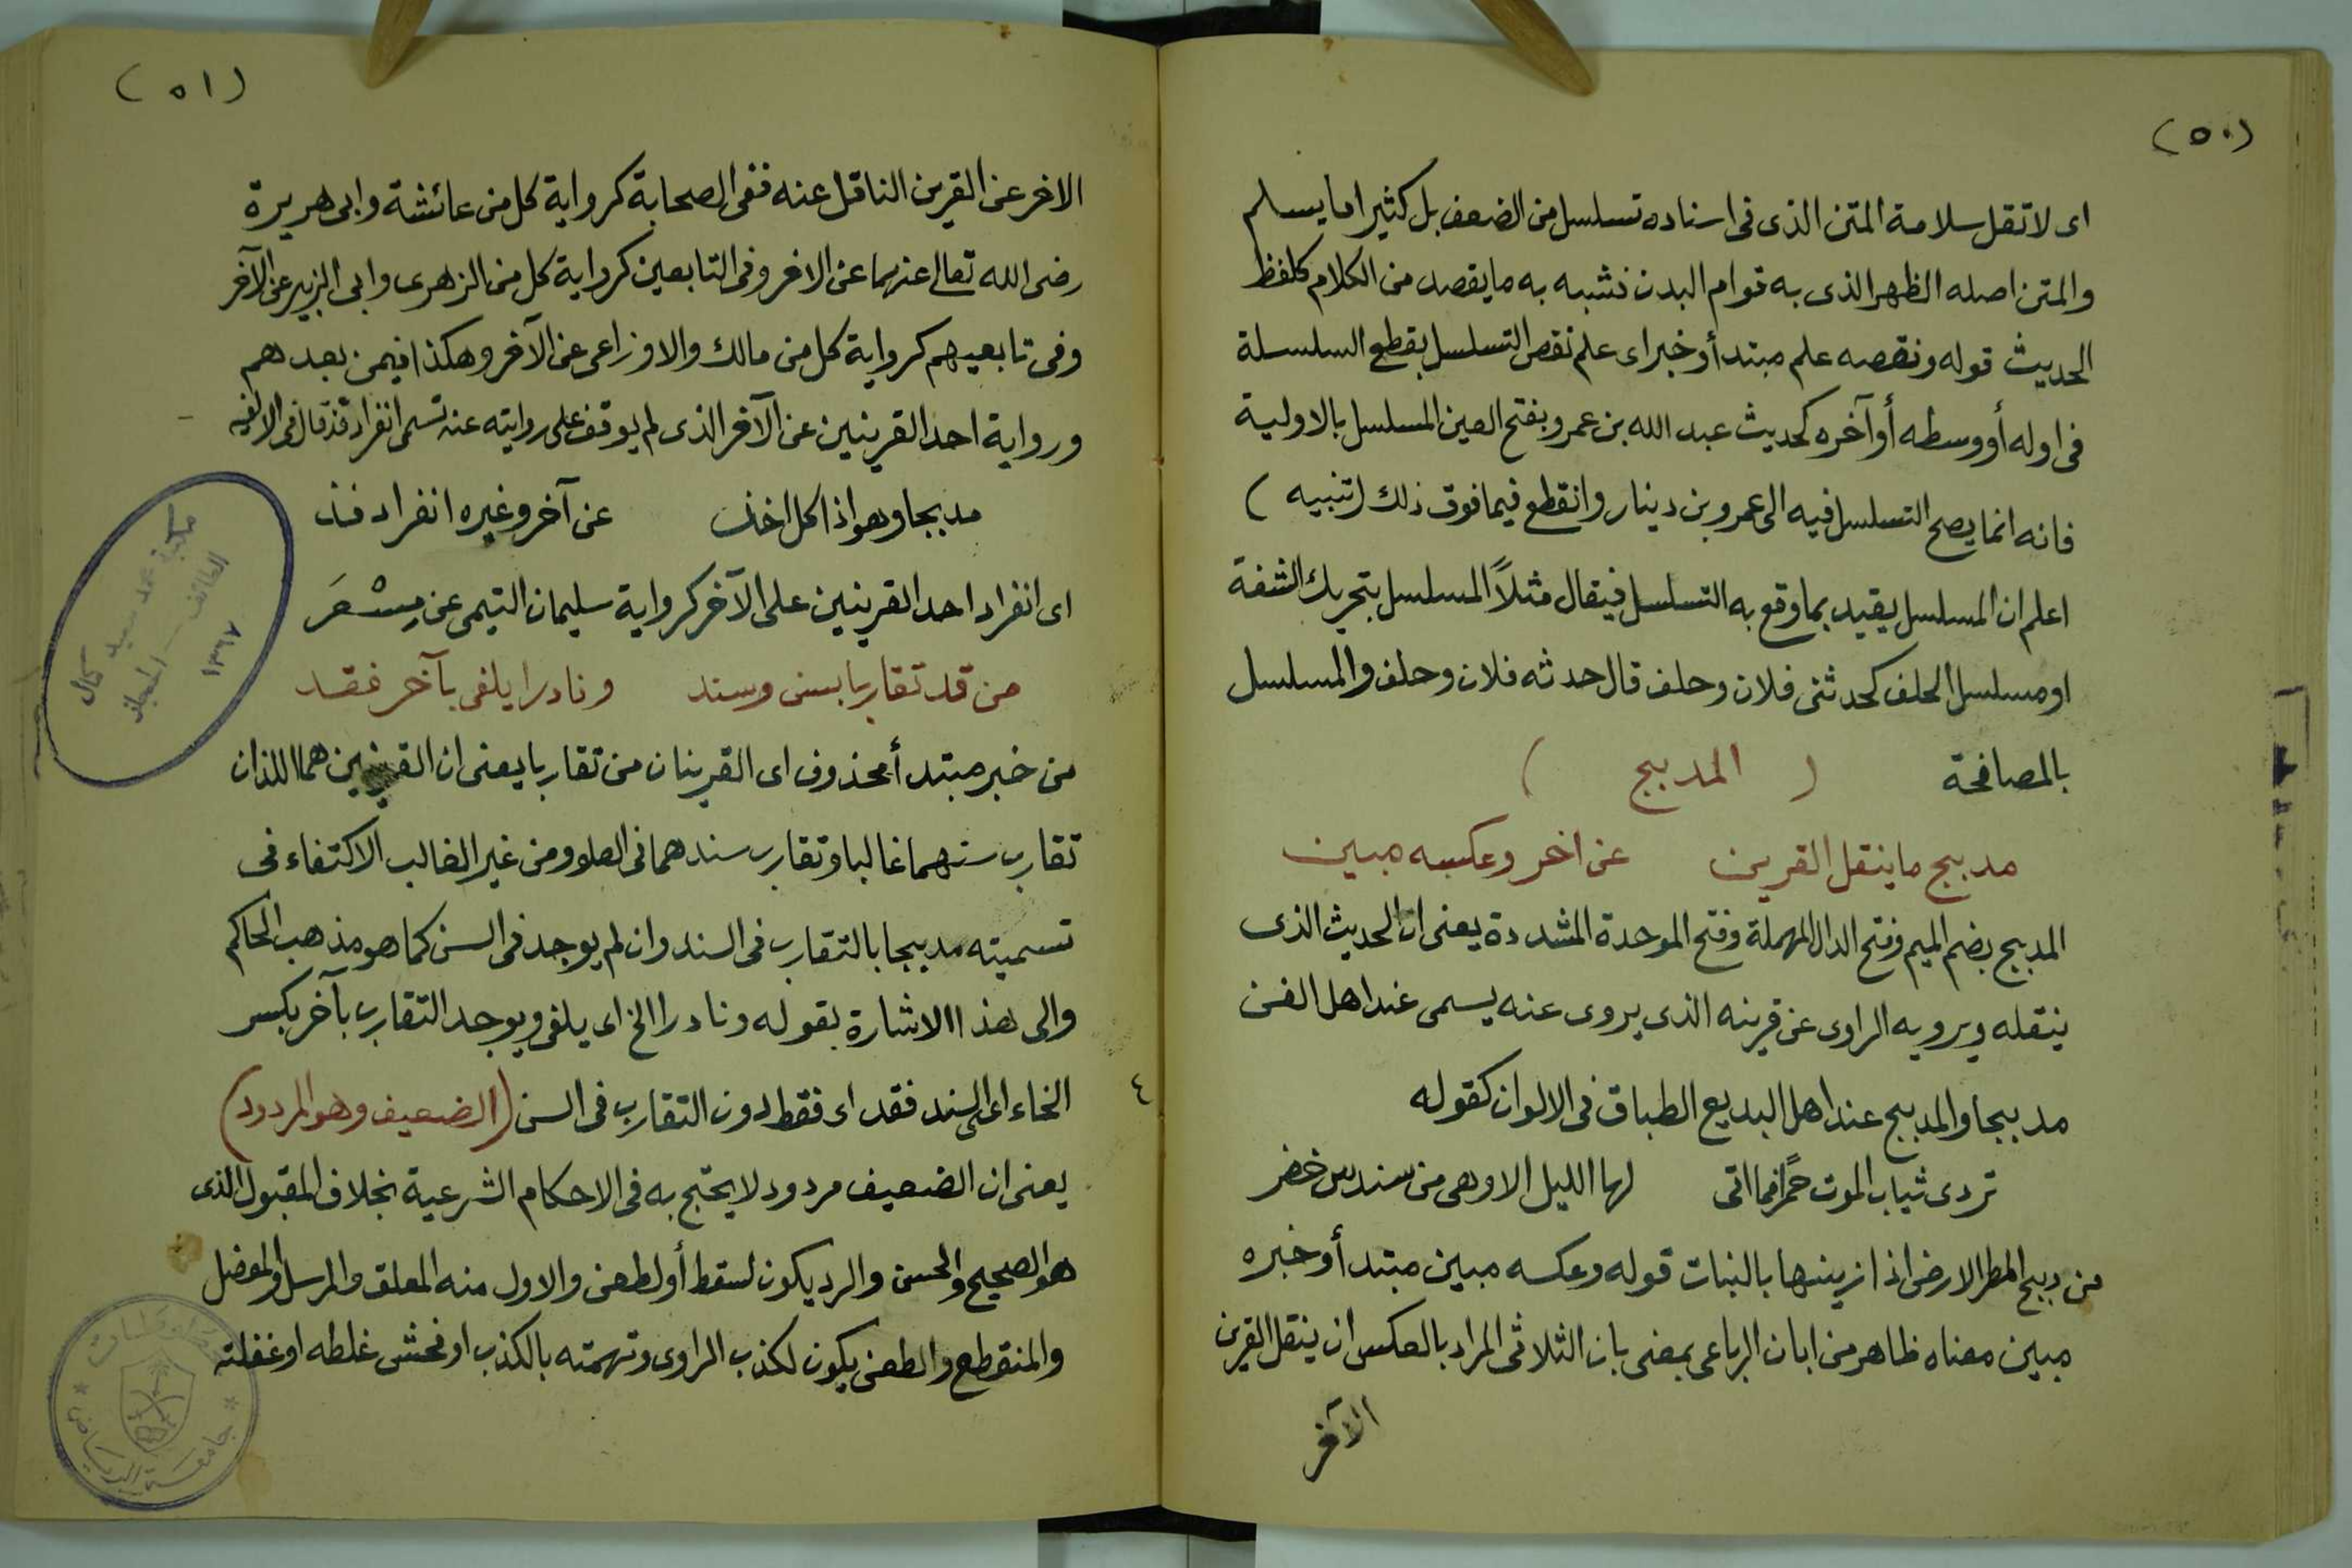 (٥٠)
اى لا تقل سلامة المتن الذى فى اسناده تسلسل من الضعف بل كثيرا ما يسلم
والمتن اصله الظهر الذى به قوام البدن فشبه به ما يقصد من الكلام كلفظ
الحديث قوله ونقصه علم مبتدأ وخبر اى علم نقص التسلسل بقطع السلسلة
فى اوله أو وسطه أو آخره كحديث عبد الله بن عمرو بفتح العين المسلسل بالاولية
فانه انما يصح التسلسل فيه الى عمرو بن دينار وانقطع فيما فوق ذلك (تنبيه)
اعلم ان المسلسل يقيد بما وقع به التسلسل فيقال مثلاً المسلسل بتحريك الشفة
او مسلسل الحلف كحدثنى فلان وحلف قال حدثه فلان وحلف والمسلسل
بالمصافحة ( المدبج )
مدبج ما ينقل القرين عن اخر وعكسه مبين
المدبج بضم الميم وفتح الدال المهملة وفتح الموحدة المشددة يعنى ان الحديث الذى
ينقله ويرويه الراوى عن قرينه الذى يروى عنه يسمى عند اهل الفن
مدبجا والمدبج عند اهل البديع الطباق فى الالوان كقوله
تردى ثياب الموت حمرًا فما اتى لها الليل الا وهى من سندس خضر
من دبج المطر الارض اذا زينها بالنبات قوله وعكسه مبين مبتدأ وخبره
مبين معناه ظاهر من ابان الرباعى بمعنى بان الثلاثى المراد بالعكس ان ينقل القرين
الآخر
(٥١)
الاخر عن القرين الناقل عنه ففى الصحابة كرواية كل من عائشة وابى هريرة
رضى الله تعالى عنهما عن الاخر وفى التابعين كرواية كل من الزهرى وابى الزبير عن الآخر
وفى تابعيهم كرواية كل من مالك والاوزاعى عن الآخر وهكذا فيمن بعدهم
ورواية احد القرينين عن الآخر الذى لم يوقف على روايته عنه تسمى انفراد فذ قال فى الالفيه
مدبجا وهو اذا كل اخذ عن آخر وغيره انفراد فذ
اى انفراد احد القرينين على الآخر كرواية سليمان التيمى عن مِسْعَر
من قد تقاربا بسن وسند ونادرا يلفى بآخر فقد
من خبر مبتدأ محذوف اى القرينان من تقاربا يعنى ان القرينين هما اللذان
تقارب سنهما غالبا وتقارب سندهما فى العلو ومن غير الغالب الاكتفاء فى
تسميته مدبجا بالتقارب فى السند وان لم يوجد فى السن كما هو مذهب الحاكم
والى هذا الاشارة بقوله ونادرا الخ اى يلفى ويوجد التقارب بآخر بكسر
٤
الخاء اى السند فقد اى فقط دون التقارب فى السن (الضعيف وهو المردود)
يعنى ان الضعيف مردود لا يحتج به فى الاحكام الشرعية بخلاف المقبول الذى
هو الصحيح والحسن والرد يكون لسقط أو لطعن والاول منه المعلق والمرسل والمعضل
والمنقطع والطعن يكون لكذب الراوى وتهمته بالكذب او فحش غلطه او غفلته
مكتبة محمد سعيد كمال
الطائف - الحجاز
١٣٦٧
جامعة الرياض